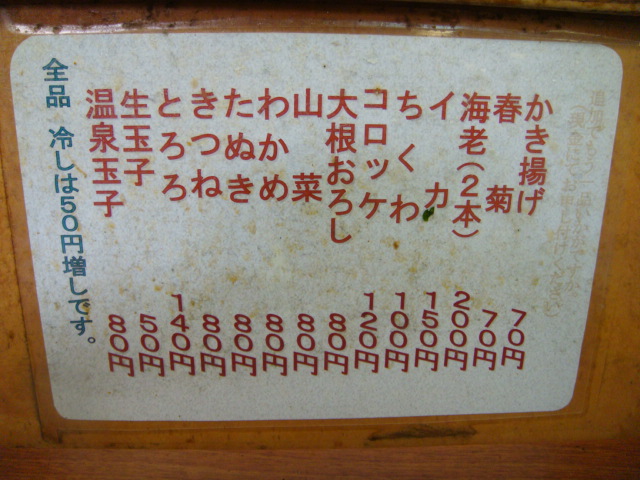 かき揚げ 70円
春菊 70円
海老(2本) 200円
イカ 150円
ちくわ 100円
コロッケ 120円
大根おろし 80円
山菜 80円
わかめ 80円
たぬき 80円
きつね 80円
とろろ 140円
生玉子 50円
温泉玉子 80円
全品 冷しは50円増しです。